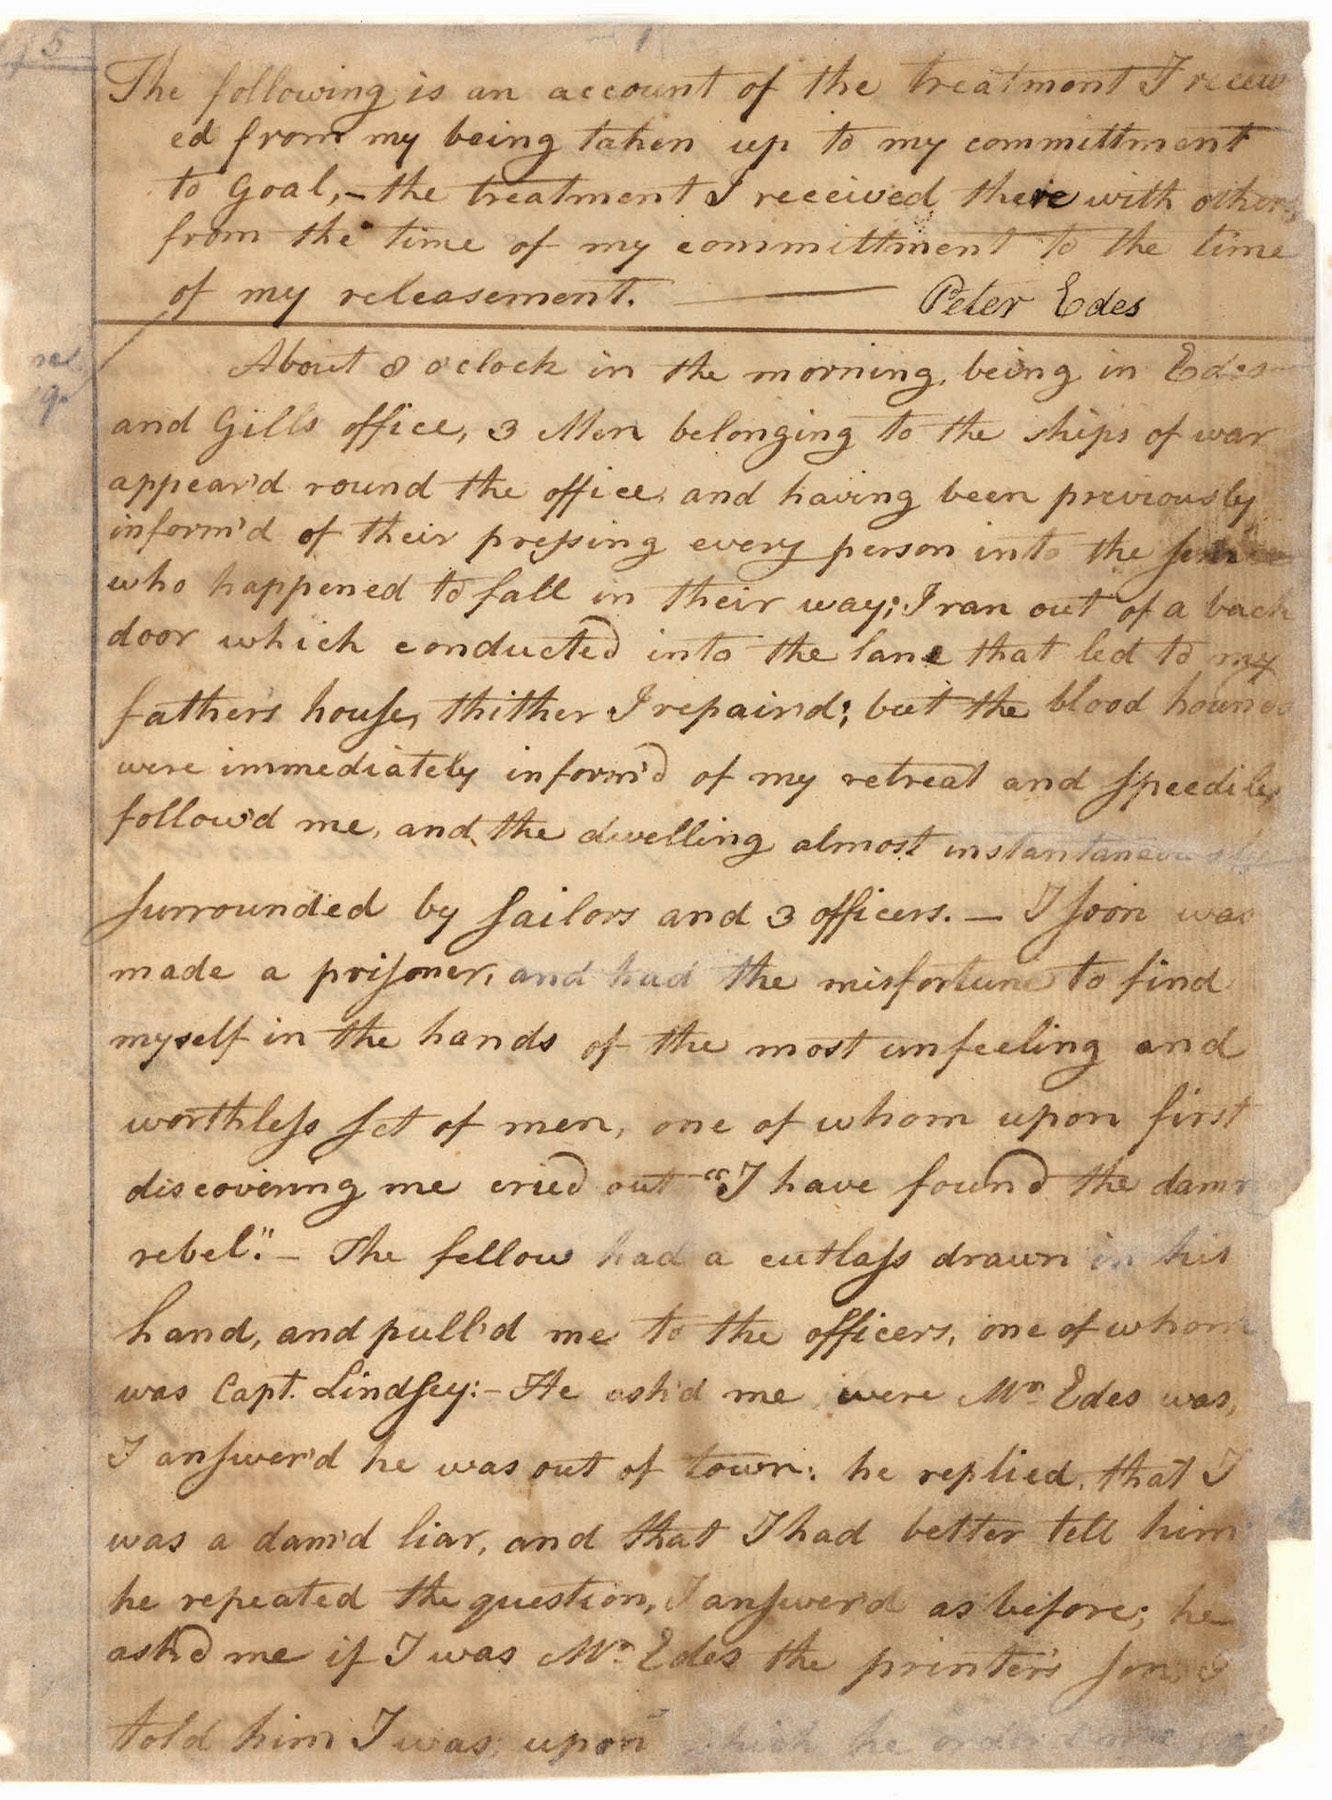 5
The following is an account of the treatment I receiv
ed from my being taken up to my committment
to Goal,– the treatment I received there with others
from the time of my committment to the time
of my releasement. —— Peter Edes
About 8 o'clock in the morning, being in Edes
and Gills office, 3 Men belonging to the ships of war
appear'd round the office, and having been previously
inform'd of their preſsing every person into the ſervice
who happened to fall in their way; I ran out of a back
door which conducted into the lane that led to my
father's houſe, thither I repair'd; but the blood hounds
were immediately inform'd of my retreat and ſpeedily
follow'd me, and the dwelling almost instantaneously
ſurrounded by ſailors and 3 officers. — I ſoon was
made a priſoner, and had the misfortune to find
myself in the hands of the most unfeeling and
worthleſs ſet of men, one of whom upon first
discovering me cried out "I have found the damn
rebel". – The fellow had a cutlaſs drawn in his
hand, and pull'd me to the officers, one of whom
was Capt. Lindſey:– He ask'd me were Mr. Edes was,
I anſwer'd he was out of town: he replied, that I
was a dam'd liar, and that I had better tell him
he repeated the question, I anſwer'd as before; he
ask'd me if I was Mr. Edes the printer's ſon, I
told him I was, upon which he